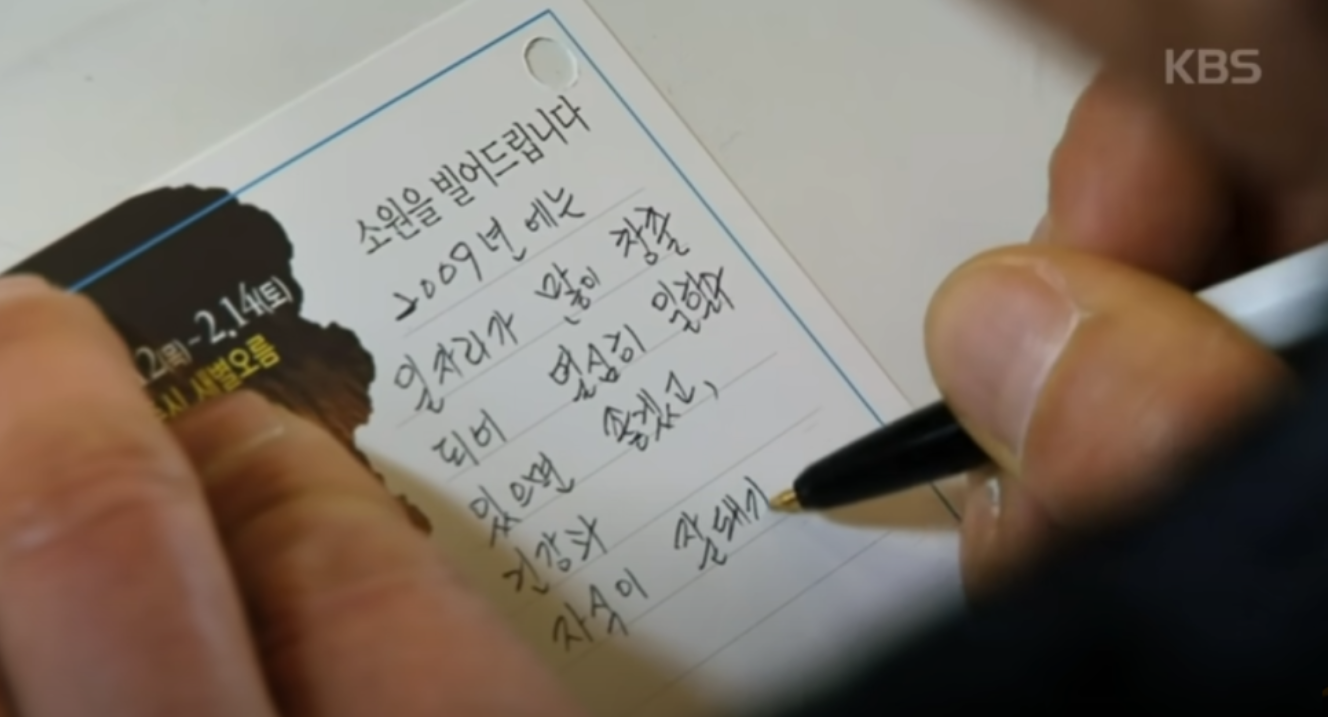 KBS
소원을 빌어드립니다
2009년 에는
일자리가 많이 창출
되어 열심히 일할수
있으면 좋겠고,
건강과
자식이 잘돼기
2(목) ~ 2.14(토)
시 새별오름